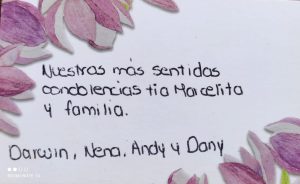 Nuestras más sentidas
condolencias tía Marcelita
y familia.
Darwin, Nena, Andy y Dany